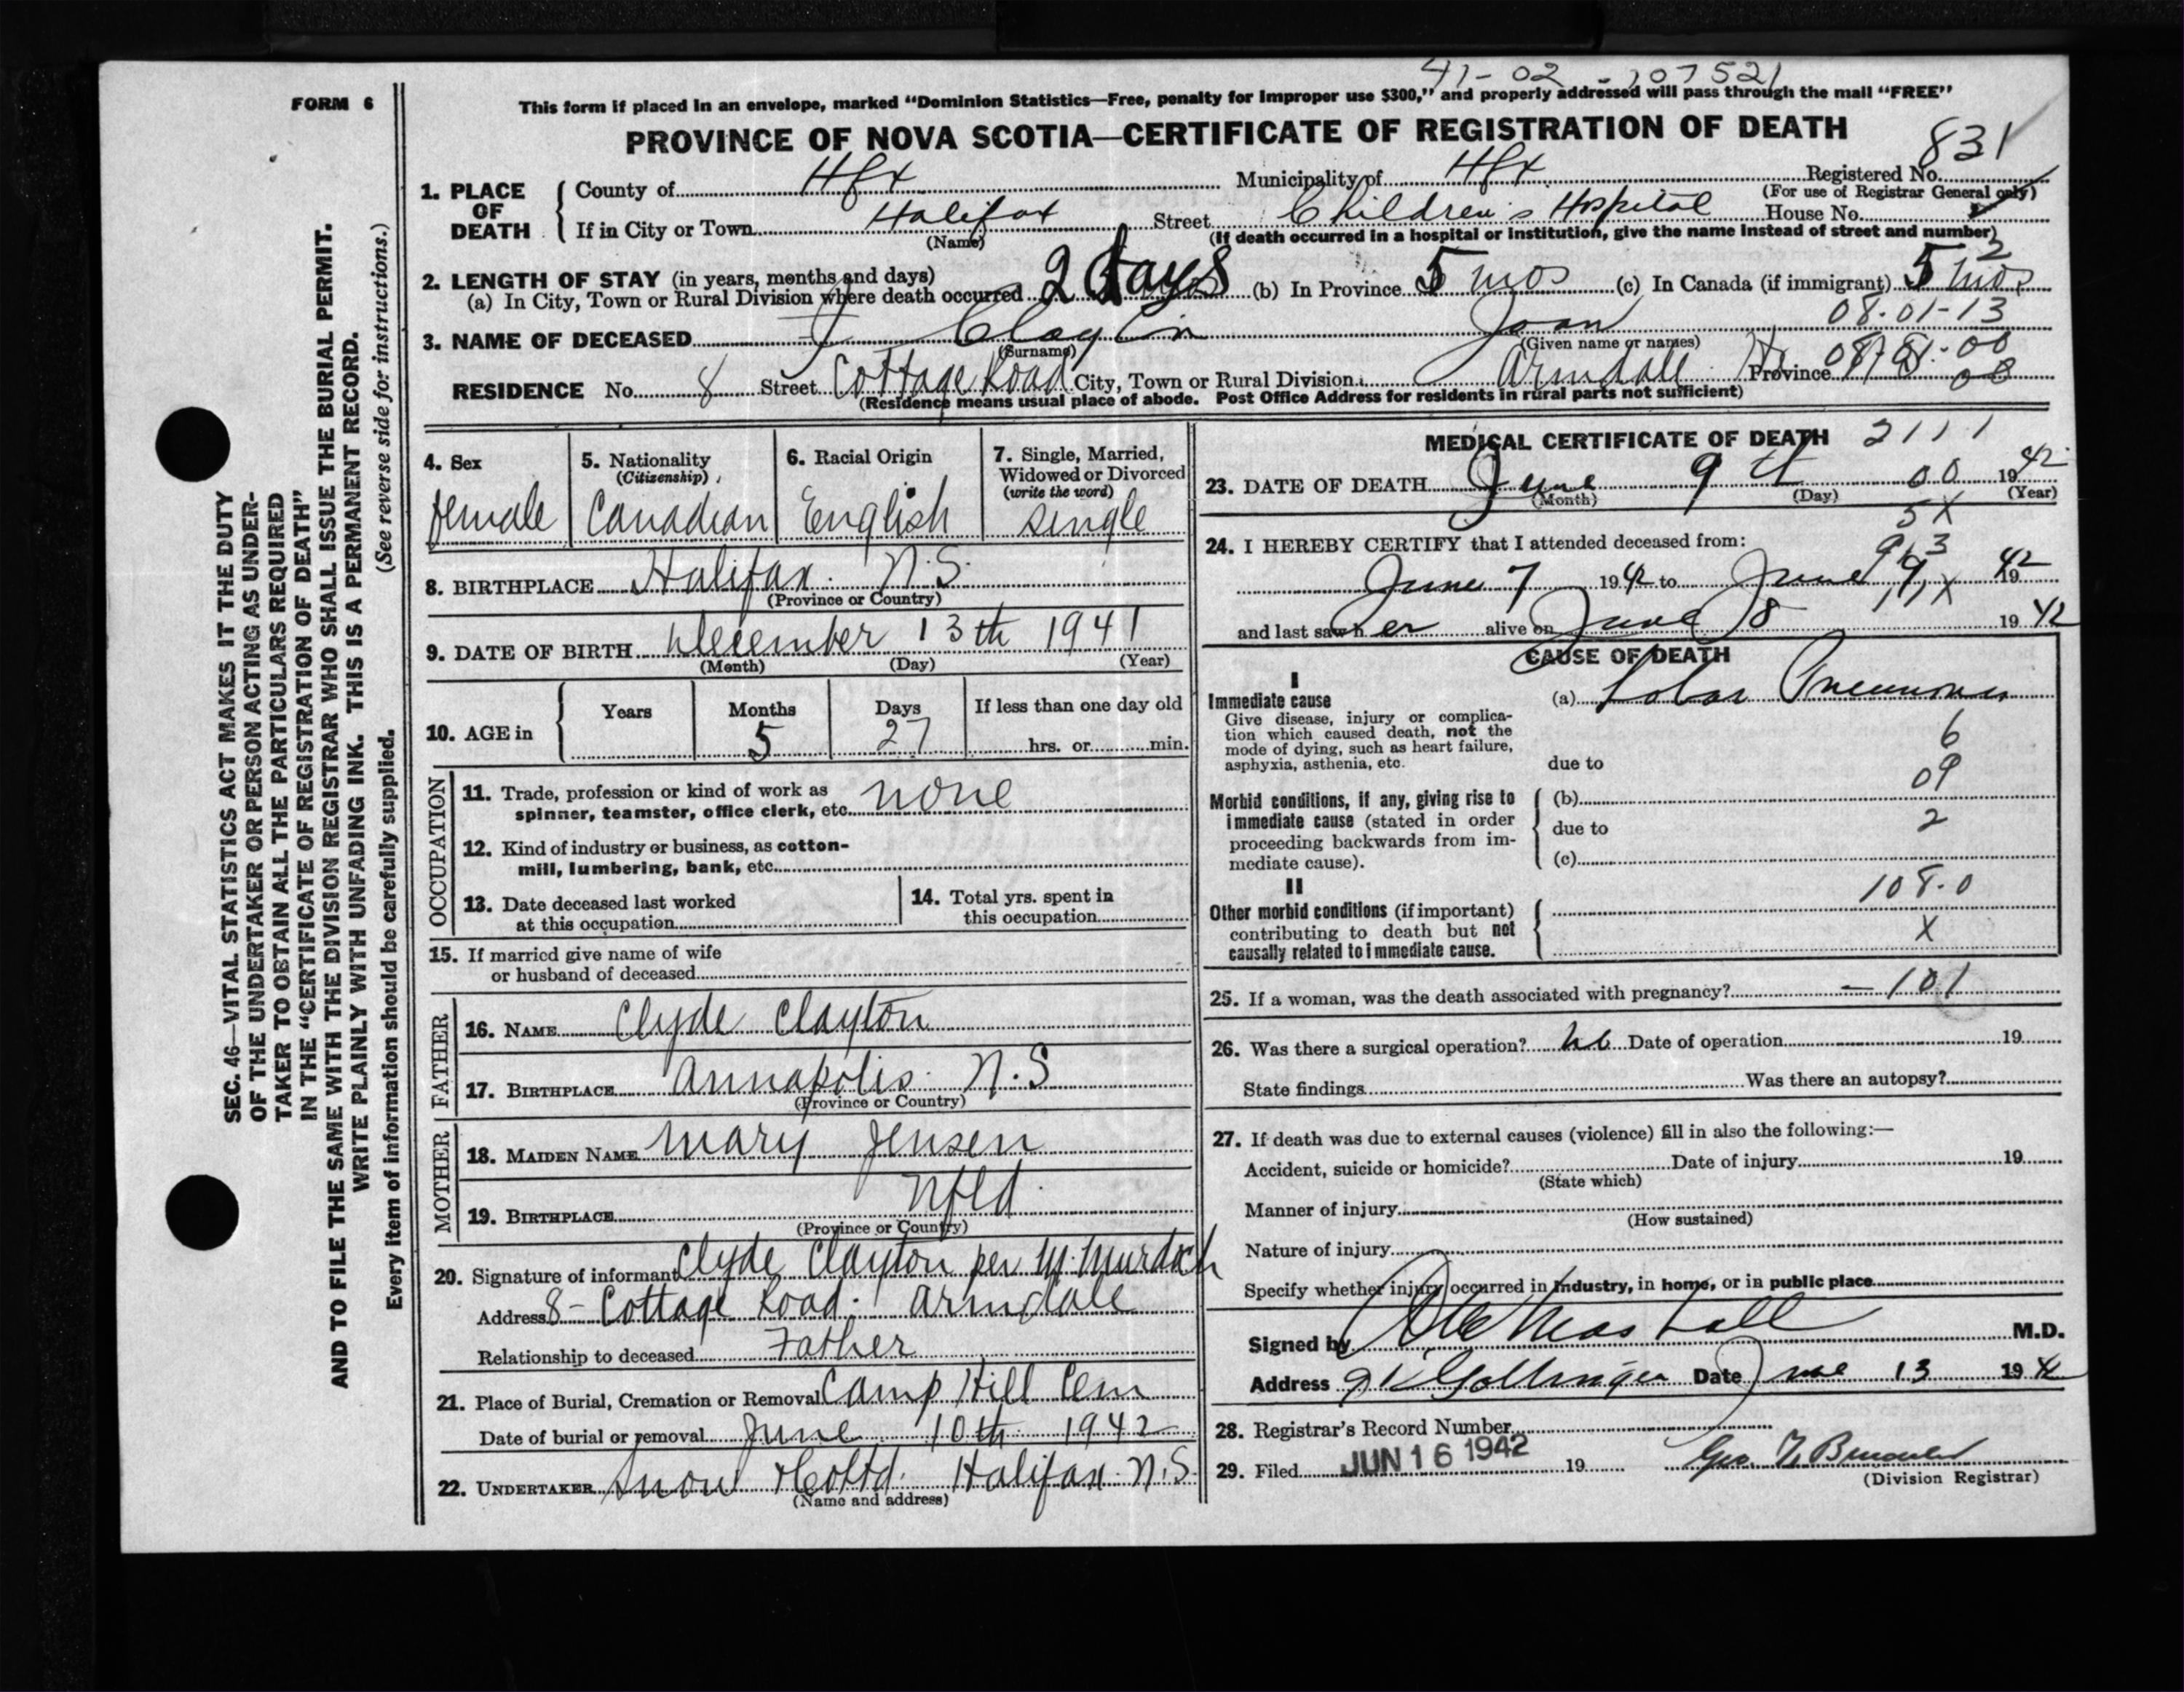 41-02-107521
FORM 6
This form if placed in an envelope, marked "Dominion Statistics—Free, penalty for improper use $300," and properly addressed will pass through the mail "FREE"
PROVINCE OF NOVA SCOTIA—CERTIFICATE OF REGISTRATION OF DEATH
831
1. PLACE OF DEATH County of Hfx Municipality of Hfx Registered No.
(For use of Registrar General only)
If in City or Town Halifax Street Children's Hospital House No.
(Name) (If death occurred in a hospital or institution, give the name instead of street and number)
2. LENGTH OF STAY (in years, months and days) 2
(a) In City, Town or Rural Division where death occurred 2 days (b) In Province 5 mos (c) In Canada (if immigrant) 5 mos
08.01-13
3. NAME OF DECEASED Clayton Joan
(Surname) (Given name or names)
RESIDENCE No. 8 Street Cottage Road City, Town or Rural Division Armdale Province
(Residence means usual place of abode. Post Office Address for residents in rural parts not sufficient)
4. Sex
female
5. Nationality
(Citizenship)
Canadian
6. Racial Origin
English
7. Single, Married,
Widowed or Divorced
(write the word)
single
8. BIRTHPLACE Halifax. N.S.
(Province or Country)
9. DATE OF BIRTH December 13th 1941
(Month) (Day) (Year)
10. AGE in Years Months Days If less than one day old
5 27 hrs. or min.
OCCUPATION
11. Trade, profession or kind of work as
spinner, teamster, office clerk, etc. none
12. Kind of industry or business, as cotton-
mill, lumbering, bank, etc.
13. Date deceased last worked
at this occupation
14. Total yrs. spent in
this occupation
15. If married give name of wife
or husband of deceased
FATHER
16. NAME Clyde Clayton
17. BIRTHPLACE Annapolis. N.S
(Province or Country)
MOTHER
18. MAIDEN NAME Mary Jensen
19. BIRTHPLACE Nfld.
(Province or Country)
20. Signature of informant Clyde Clayton per M. Murdoch
Address 8- Cottage Road. Armdale
Relationship to deceased Father
21. Place of Burial, Cremation or Removal Camp Hill Cem
Date of burial or removal June 10th 1942
22. UNDERTAKER Snow & Co Ltd. Halifax. N.S.
(Name and address)
MEDICAL CERTIFICATE OF DEATH 2111
23. DATE OF DEATH June 9th 00 1942
(Month) (Day) (Year)
5X
24. I HEREBY CERTIFY that I attended deceased from:
June 7 1942 to June 9, 1942
and last saw h er alive on June 8 1942
CAUSE OF DEATH
I
Immediate cause
Give disease, injury or complica-
tion which caused death, not the
mode of dying, such as heart failure,
asphyxia, asthenia, etc.
(a) Lobar Pneumonia
6
due to
09
Morbid conditions, if any, giving rise to
immediate cause (stated in order
proceeding backwards from im-
mediate cause).
(b)
due to 2
(c)
II
108.0
Other morbid conditions (if important)
contributing to death but not
causally related to immediate cause.
X
25. If a woman, was the death associated with pregnancy? - 101
26. Was there a surgical operation? no Date of operation 19
State findings Was there an autopsy?
27. If death was due to external causes (violence) fill in also the following:—
Accident, suicide or homicide? Date of injury 19
(State which)
Manner of injury
(How sustained)
Nature of injury
Specify whether injury occurred in industry, in home, or in public place
Signed by M.D.
Address Date June 13 194
28. Registrar's Record Number
29. Filed JUN 16 1942 19
(Division Registrar)
SEC. 46—VITAL STATISTICS ACT MAKES IT THE DUTY
OF THE UNDERTAKER OR PERSON ACTING AS UNDER-
TAKER TO OBTAIN ALL THE PARTICULARS REQUIRED
IN THE "CERTIFICATE OF REGISTRATION OF DEATH"
AND TO FILE THE SAME WITH THE DIVISION REGISTRAR WHO SHALL ISSUE THE BURIAL PERMIT.
WRITE PLAINLY WITH UNFADING INK. THIS IS A PERMANENT RECORD.
Every item of information should be carefully supplied. (See reverse side for instructions.)